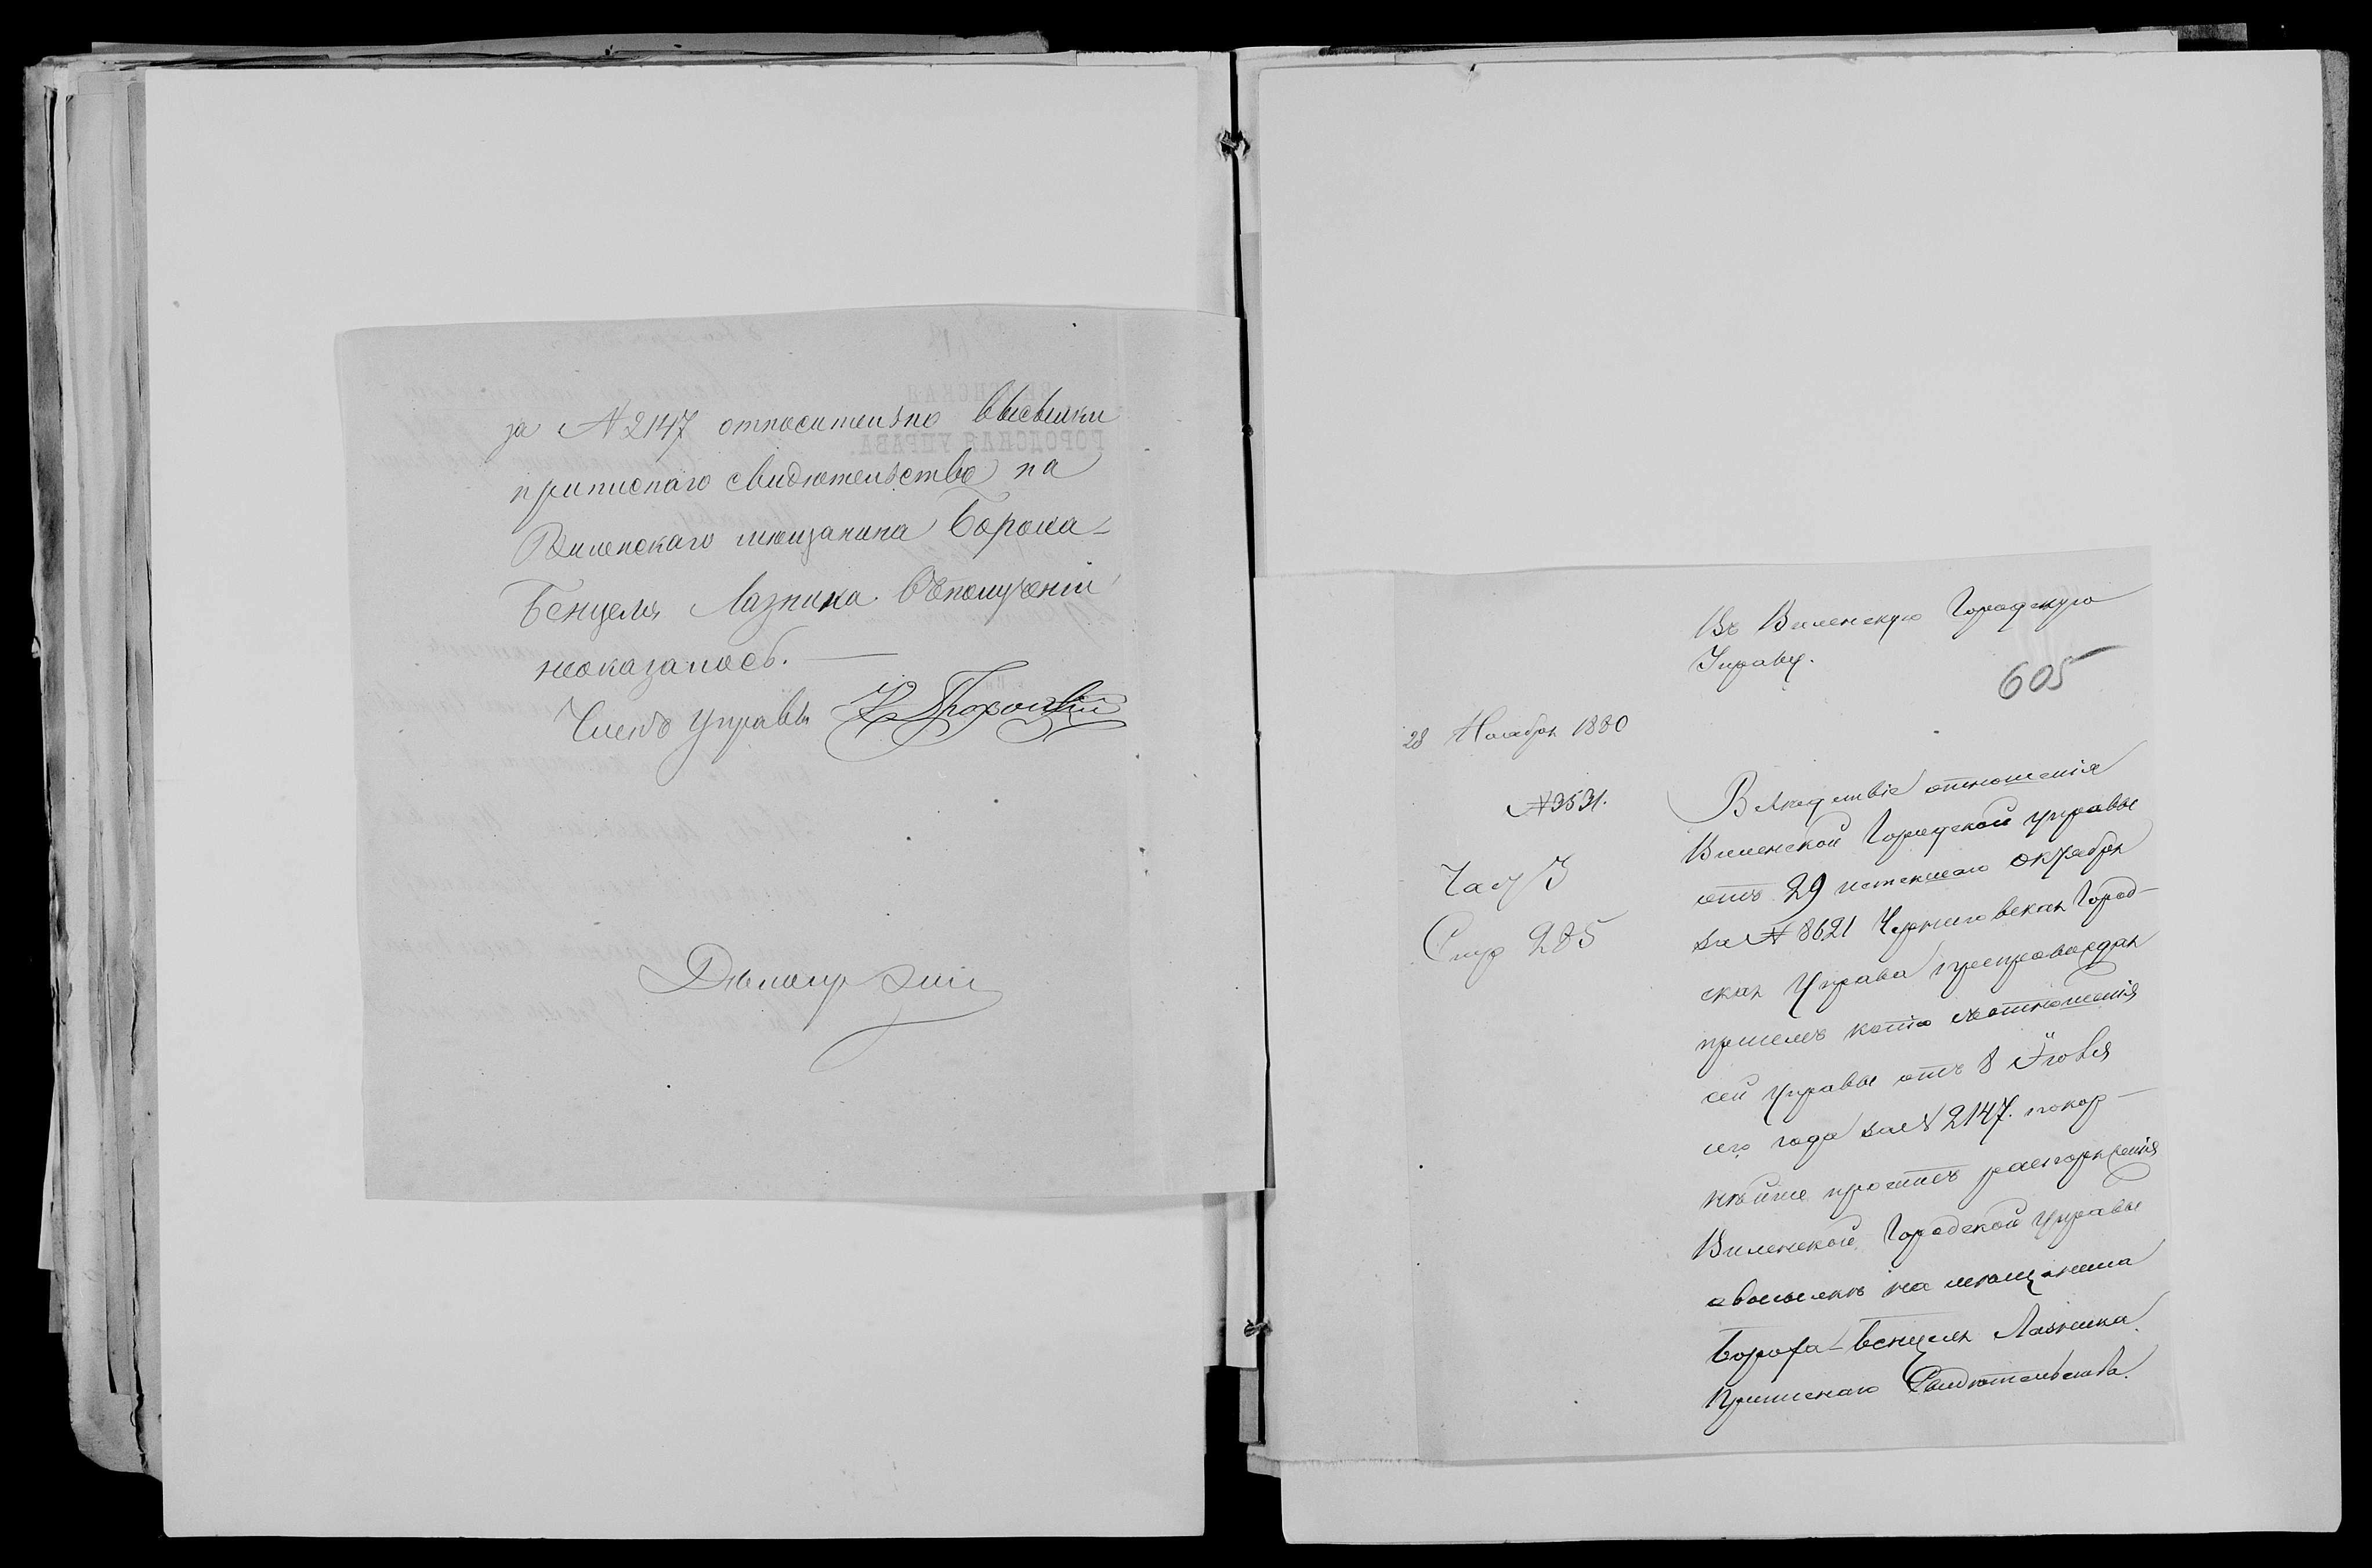 за №2147 относительно высылки
приписнаго свидѣтельства на
Виленскаго мѣщанина Бороха-
Бенцеля Лазника въ полученіи
неоказалось.
Членъ Управы
605
Въ Виленскую Городскую
Управу.
28 Ноября 1880
№3531.
Част 3
Стр 285
Вслѣдствіе отношенія
Виленской Городской управы
отъ 29 истекшаго октября
за №8621 Черниговская Город-
ская Управа препровождая
при семъ копію съ отношенія
сей Управы отъ 8 Іюля
сего года за №2147. покор-
нѣйше проситъ распоряженія
Виленской Городской управы
о высылкѣ на мѣщанина
Бороха-Бенцеля Лазника
Приписнаго Свидѣтельства.